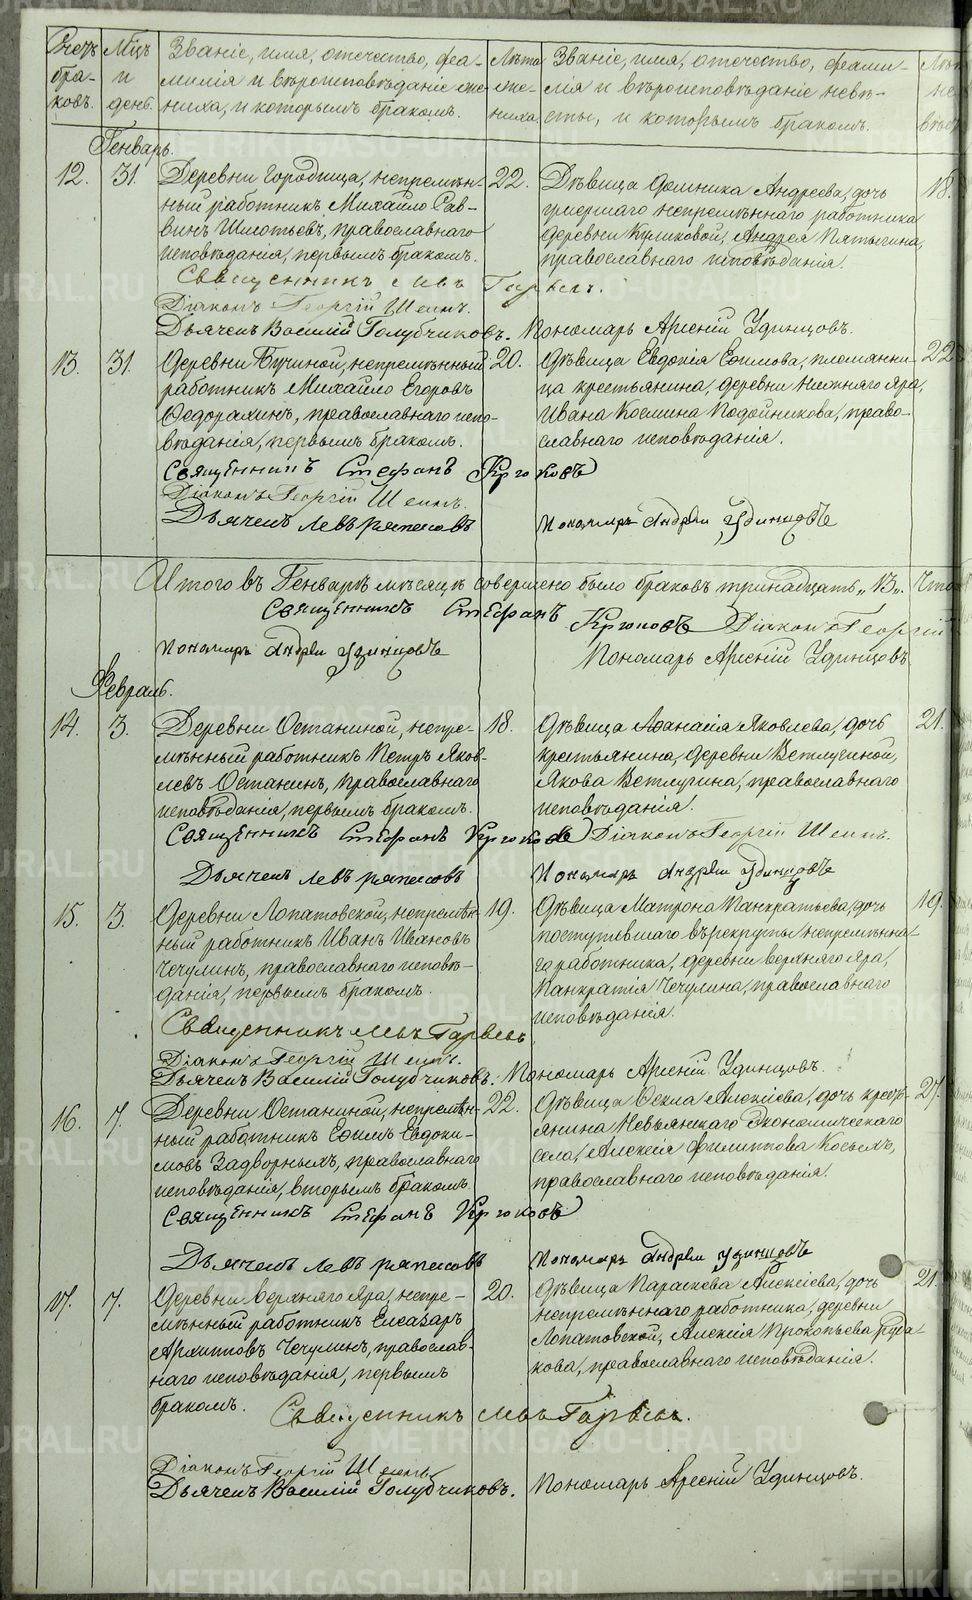 Счетъ браковъ.
Мцъ и день.
Званіе, имя, отечество, фамилія и вѣроисповѣданіе жениха, и которымъ бракомъ.
Лѣта жениха.
Званіе, имя, отечество, фамилія и вѣроисповѣданіе невѣсты, и которымъ бракомъ.
Генварь.
12.
31.
Деревни Городища, непремѣн-
ный работникъ Михайло Сав-
винъ, православнаго
исповѣданія, первымъ бракомъ.
22.
Дѣвица Домника Андреева, дочь
умершаго непремѣннаго работника
деревни Куликовой, Андрея Пятыгина,
православнаго исповѣданія.
18.
Священникъ Левъ
Діаконъ Георгій
Дьячекъ Василій Голубчиковъ. Пономарь Арсеній Удинцовъ.
13.
31.
Деревни Бучиной, непремѣнный
работникъ Михайло Егоровъ
Федорахинъ, православнаго испо-
вѣданія, первымъ бракомъ.
20.
Дѣвица Евдокія Ефимова, племянни-
ца крестьянина, деревни Нижняго Яра,
Ивана Космина Подойникова, право-
славнаго исповѣданія.
22
Священникъ Стефанъ Крюковъ
Діаконъ Георгій
Дьячекъ Левъ Ряписовъ
Пономарь Андрей Удинцовъ
Итого въ Генварѣ мѣсяцѣ совершено было браковъ тринадцать „13„. Что
Священникъ Стефанъ Крюковъ Діаконъ Георгій
Пономарь Андрей Удинцовъ
Пономарь Арсеній Удинцовъ
Февраль.
14.
3.
Деревни Останиной, непре-
мѣнный работникъ Петръ Яков-
левъ Останинъ, православнаго
исповѣданія, первымъ бракомъ.
18.
Дѣвица Афанасія Яковлева, дочь
крестьянина, деревни Ветлугиной,
Якова Ветлугина, православнаго
исповѣданія.
21.
Священникъ Стефанъ Крюковъ Діаконъ Георгій
Дьячекъ Левъ Ряписовъ
Пономарь Андрей Удинцовъ
15.
3.
Деревни Лопатовской, непремѣн-
ный работникъ Иванъ Ивановъ
Чечулинъ, православнаго исповѣ-
данія, первымъ бракомъ.
19.
Дѣвица Матрона Панкратьева, дочь
поступившаго въ рекруты непремѣнна-
го работника, деревни верхняго Яра,
Панкратія Чечулина, православнаго
исповѣданія.
19.
Священникъ Левъ
Діаконъ Георгій
Дьячекъ Василій Голубчиковъ. Пономарь Арсеній Удинцовъ.
16.
7.
Деревни Останиной, непремѣн-
ный работникъ Ефимъ Евдоки-
мовъ Задворныхъ, православнаго
исповѣданія, вторымъ бракомъ
22.
Дѣвица Фекла Алексіева, дочь кресть-
янина Невьянскаго Экономическаго
села, Алексія Филиппова Косыхъ,
православнаго исповѣданія.
27.
Священникъ Стефанъ Крюковъ
Дьячекъ Левъ Ряписовъ
Пономарь Андрей Удинцовъ
17.
7.
Деревни верхняго Яра, непре-
мѣнный работникъ Елеазаръ
Архиповъ Чечулинъ, православ-
наго исповѣданія, первымъ
бракомъ.
20.
Дѣвица Параскева Алексіева, дочь
непремѣннаго работника, деревни
Лопатовской, Алексія Прокопьева Руда-
кова, православнаго исповѣданія.
21.
Священникъ Левъ
Діаконъ Георгій
Дьячекъ Василій Голубчиковъ. Пономарь Арсеній Удинцовъ.
METRIKI.GASO-URAL.RU